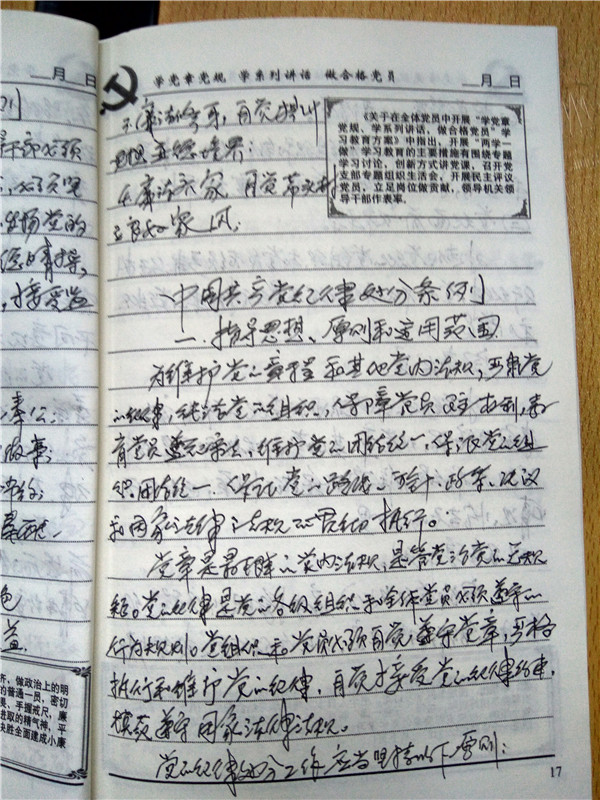 月 日
则
部必须
接受监
奉公;
做事;
色
益
，做政治上的明
的普通一员，密切
畏、手握戒尺，廉
进取的精气神，平
决胜全面建成小康
学党章党规 学系列讲话 做合格党员
月 日
《关于在全体党员中开展“学党章
党规、学系列讲话，做合格党员”学
习教育方案》中指出，开展“两学一
做”学习教育的主要措施有围绕专题
学习讨论，创新方式讲党课，召开党
支部专题组织生活会，开展民主评议
党员，立足岗位做贡献，领导机关领
导干部作表率。
3.廉洁修身，自觉提升
思想道德境界;
4.廉洁齐家，自觉带头树
立良好家风;
中国共产党纪律处分条例
一.指导思想、原则和适用范围
为维护党的章程和其他党内法规，严肃党
的纪律，纯洁党的组织，保障党员民主权利，教
育党员遵纪守法，维护党的团结统一，保证党的
组织团结统一.保证党的路线、方针、政策、决议
和国家法律法规的贯彻执行。
党章是最根本的党内法规，是管党治党的总规
矩。党的纪律是党的各级组织和全体党员必须遵守的
行为规则。党组织和党员必须自觉遵守党章，严格
执行和维护党的纪律，自觉接受党的纪律约束，
模范遵守国家法律法规。
党的纪律处分工作应当坚持以下原则:
17